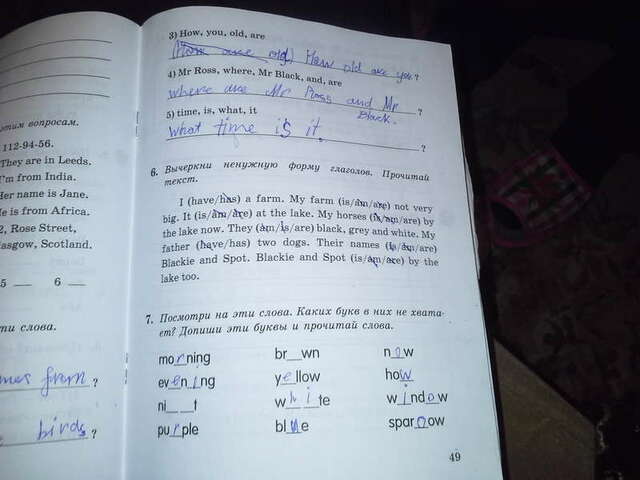 этим вопросам.
112-94-56.
They are in Leeds.
I'm from India.
Her name is Jane.
He is from Africa.
2, Rose Street,
Glasgow, Scotland.
5 __ 6 __
ти слова.
from ?
birds ?
3) How, you, old, are
How old are you?
4) Mr Ross, where, Mr Black, and, are
where are Mr Ross and Mr
Black. ?
5) time, is, what, it
what time is it. ?
6. Вычеркни ненужную форму глаголов. Прочитай
текст.
I (have/has) a farm. My farm (is/am/are) not very
big. It (is/am/are) at the lake. My horses (is/am/are) by
the lake now. They (am/is/are) black, grey and white. My
father (have/has) two dogs. Their names (is/am/are)
Blackie and Spot. Blackie and Spot (is/am/are) by the
lake too.
7. Посмотри на эти слова. Каких букв в них не хвата-
ет? Допиши эти буквы и прочитай слова.
morning br__wn now
evening yellow how
ni__ __t white window
purple blue sparOow
49